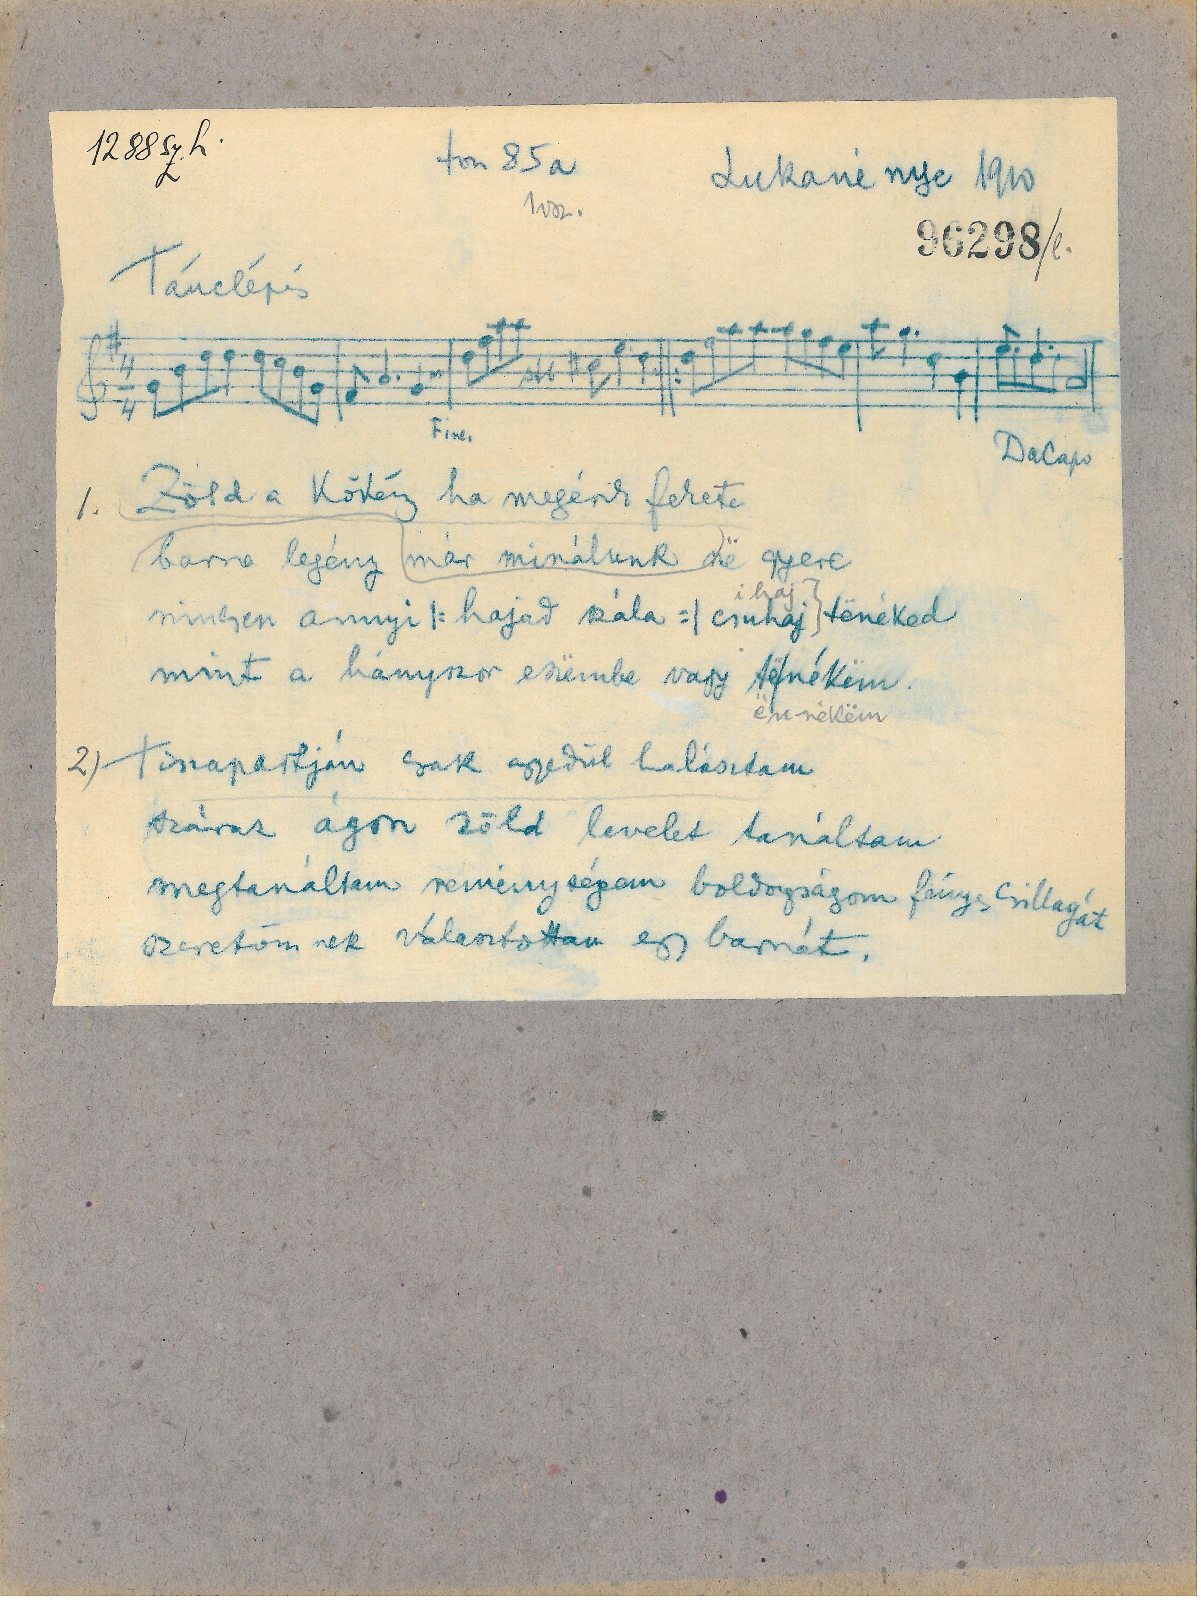 1288 sz. h.
fon 85a
Lukanénye 1910
1 vsz.
96298/l.
Tánclépés
4
4
Fine.
Da Capo
1. Zöld a kökény ha megérik fekete
barna legény már minálunk në gyere
ninsen annyi |: hajad szála :| csuhaj tënéked
ihaj
mint a hányszor eszëmbe vagy tënékëm.
ën-nékëm
2) Tiszapartján csak egyedül halásztam
száraz ágon zöld levelet tanáltam
megtanáltam reménységem boldogságom fényes csillagát
szeretőmnek választottam egy barnát.